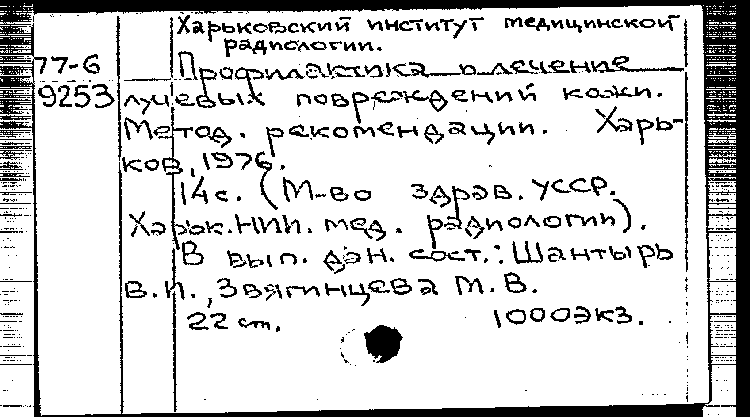 Харьковский институт медицинской
радиологии.
77-6 Профилактика и лечение
9253 лучевых повреждений кожи.
Метод. рекомендации. Харь-
ков, 1976.
14с. (М-во здрав. УССР.
Харьк. НИИ. мед. радиологии).
В вып. дан. сост.: Шантырь
В.И., Звягинцева М.В.
22 ст. 1000экз.